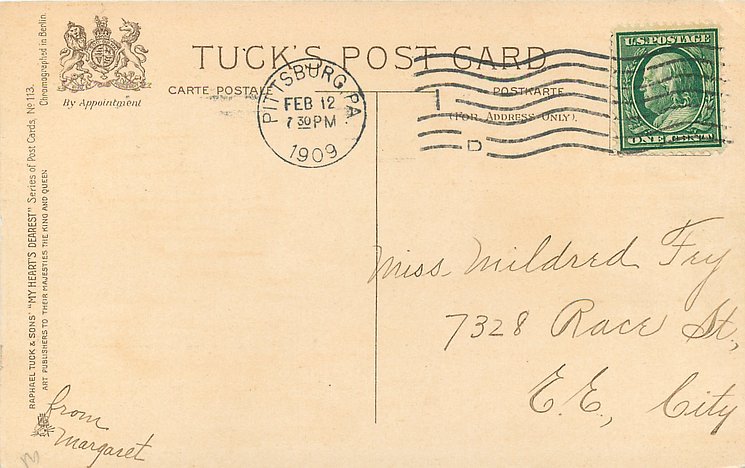 TUCK'S POST CARD
CARTE POSTALE
POSTKARTE
(FOR ADDRESS ONLY).
By Appointment
RAPHAEL TUCK & SONS' "MY HEART'S DEAREST" Series of Post Cards, No 113.
ART PUBLISHERS TO THEIR MAJESTIES THE KING AND QUEEN
Chromographed in Berlin.
PITTSBURG, PA.
FEB 12
7 30 PM
1909
1
D
U.S. POSTAGE
ONE
Miss Mildred Fry
7328 Race St,
E.E., City
from
Margaret